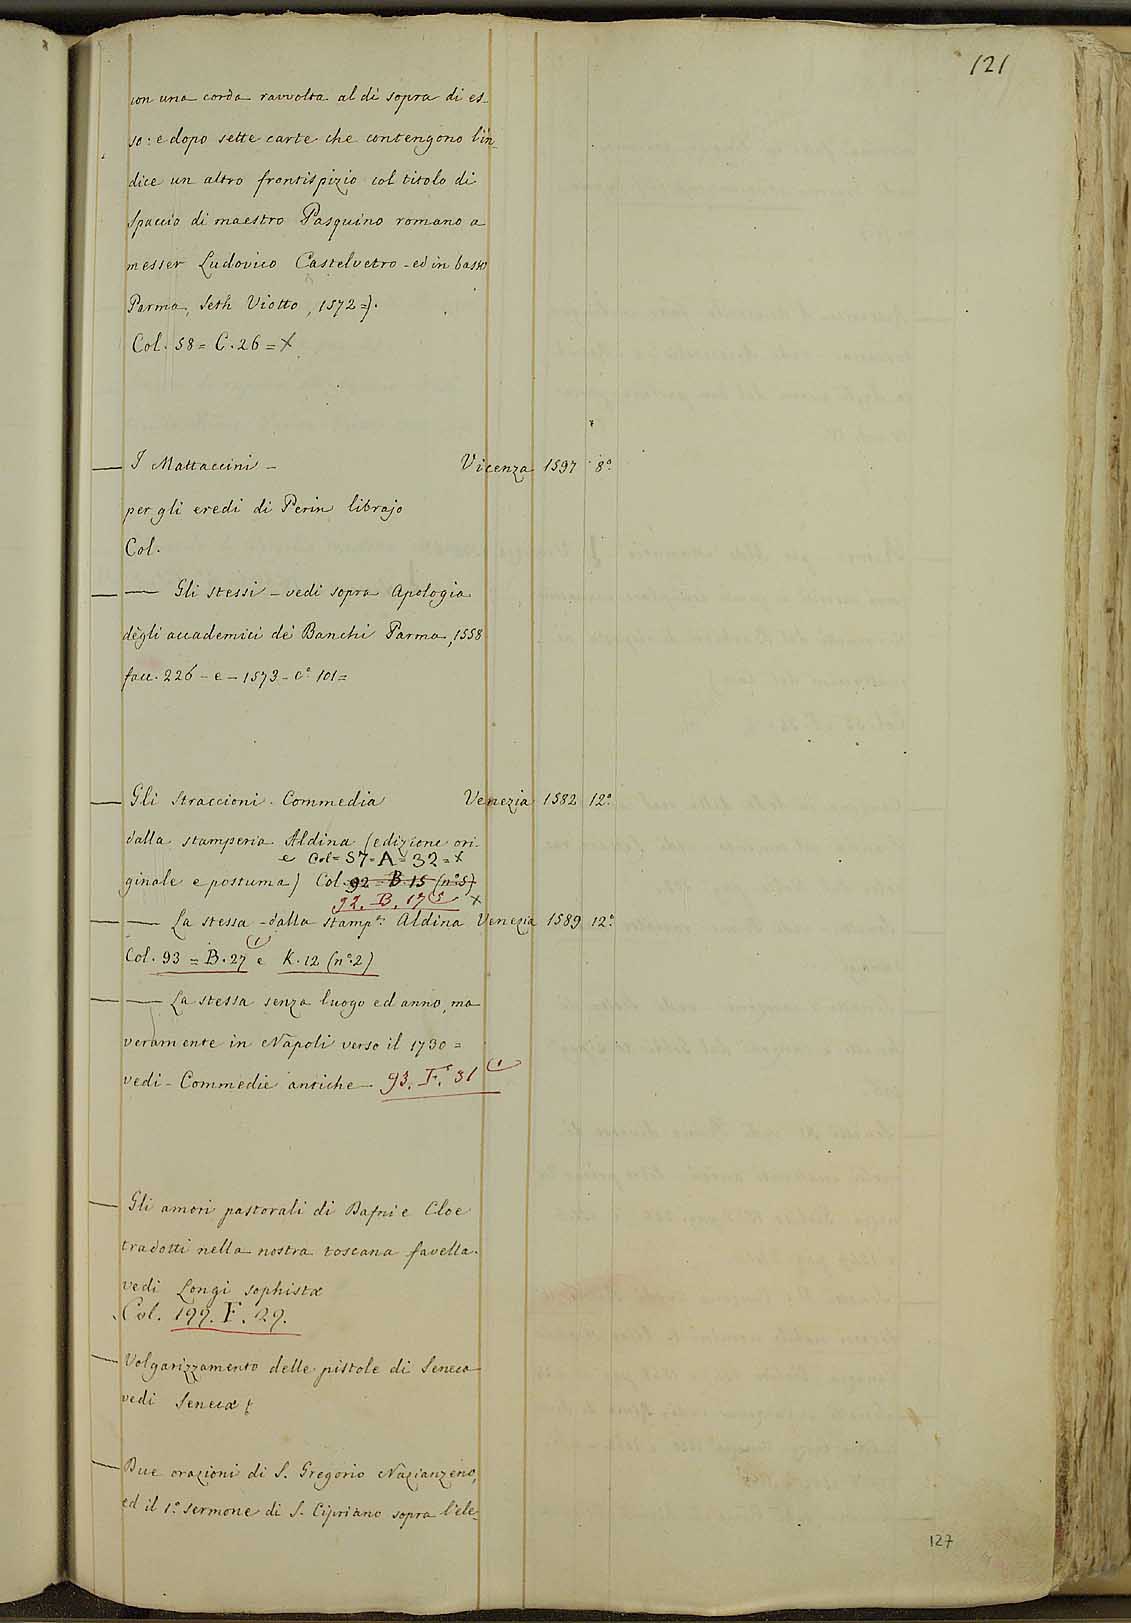 121
con una corda ravvolta al di sopra di es-
so: e dopo sette carte che contengono l'in-
dice un altro frontispizio col titolo di
Spaccio di maestro Pasquino romano a
messer Ludovico Castelvetro - ed in basso
Parma, Seth Viotto, 1572=).
Col. 58 = C. 26 = X
— I Mattaccini - Vicenza 1597 8º
per gli eredi di Perin librajo
Col.
— — Gli stessi - vedi sopra Apologia
degli accademici de' Banchi Parma, 1558
face. 226 - e - 1573 - cº 101=
— Gli straccioni. Commedia Venezia 1582 12º
dalla stamperia Aldina (edizione ori-
e Col= 57= A= 32= X
ginale e postuma) Col. 92 = B. 15 (nº 5)
92. B. 17 X
— — La stessa - dalla stampª Aldina Venezia 1589 12º
Col. 93 = B. 27 (1 e K. 12 (nº 2)
— — La stessa senza luogo ed anno, ma
veramente in Napoli verso il 1730 =
vedi - Commedie antiche - 93. F. 31 (1
— Gli amori pastorali di Dafni e Cloe
tradotti nella nostra toscana favella.
vedi Longi sophistæ
Col. 199. F. 29.
— Volgarizzamento delle pistole di Seneca
vedi Senecæ
— Due orazioni di S. Gregorio Nazianzeno,
ed il 1º sermone di S. Cipriano sopra l'ele-
127